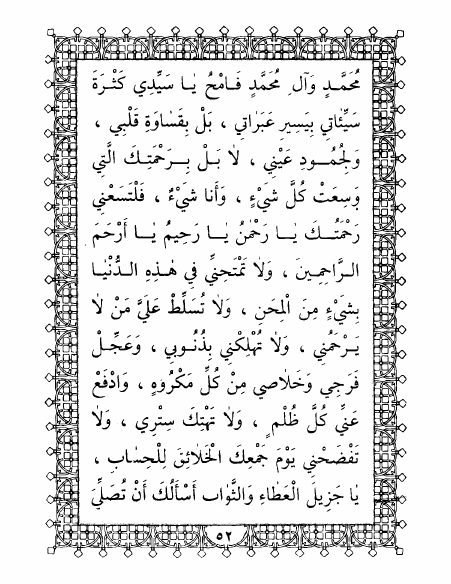 مُحَمَّدٍ وَآلِ مُحَمَّدٍ فَامْحُ يَا سَيِّدِي كَثْرَةَ
سَيِّئَاتِي بِيَسِيرِ عَبَرَاتِي ، بَلْ بِقَسَاوَةِ قَلْبِي ،
وَلِجُمُودِ عَيْنِي ، لَا بَلْ بِرَحْمَتِكَ الَّتِي
وَسِعَتْ كُلَّ شَيْءٍ ، وَأَنَا شَيْءٌ ، فَلْتَسَعْنِي
رَحْمَتُكَ يَا رَحْمٰنُ يَا رَحِيمُ يَا أَرْحَمَ
الرَّاحِمِينَ ، وَلَا تَمْتَحِنِّي فِي هٰذِهِ الدُّنْيَا
بِشَيْءٍ مِنَ الْمِحَنِ ، وَلَا تُسَلِّطْ عَلَيَّ مَنْ لَا
يَرْحَمُنِي ، وَلَا تُهْلِكْنِي بِذُنُوبِي ، وَعَجِّلْ
فَرَجِي وَخَلَاصِي مِنْ كُلِّ مَكْرُوهٍ ، وَادْفَعْ
عَنِّي كُلَّ ظُلْمٍ ، وَلَا تَهْتِكْ سِتْرِي ، وَلَا
تَفْضَحْنِي يَوْمَ جَمْعِكَ الْخَلَائِقَ لِلْحِسَابِ ،
يَا جَزِيلَ الْعَطَاءِ وَالثَّوَابِ أَسْأَلُكَ أَنْ تُصَلِّيَ
٥٢